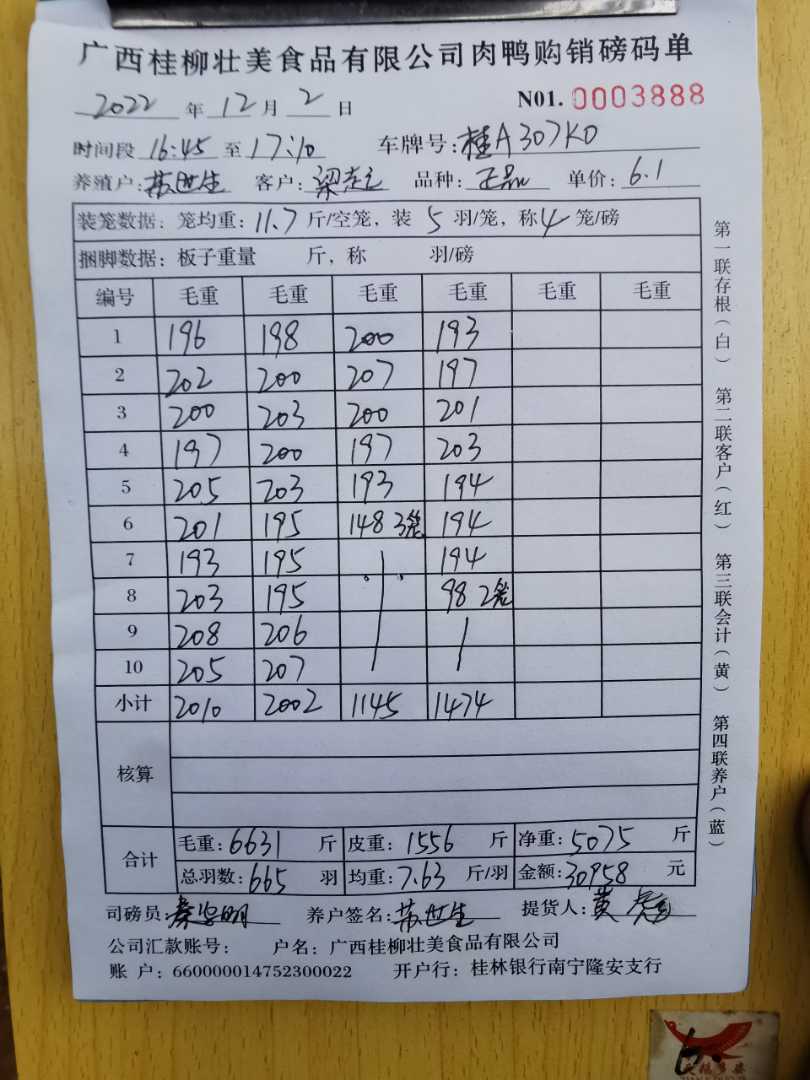 广西桂柳壮美食品有限公司肉鸭购销磅码单
2022 年 12 月 2 日 N01. 0003888
时间段 16:45 至 17:10 车牌号: 桂A307K0
养殖户: 苏世生 客户: 梁 品种: 正品 单价: 6.1
装笼数据: 笼均重: 11.7 斤/空笼, 装 5 羽/笼, 称 4 笼/磅
捆脚数据: 板子重量 斤, 称 羽/磅
编号 毛重 毛重 毛重 毛重 毛重 毛重
1 196 198 200 193
2 202 200 207 197
3 200 203 200 201
4 197 200 197 203
5 205 203 193 194
6 201 195 148 3笼 194
7 193 195 194
8 203 195 98 2笼
9 208 206
10 205 207
小计 2010 2002 1145 1474
核算
合计 毛重: 6631 斤 皮重: 1556 斤 净重: 5075 斤
总羽数: 665 羽 均重: 7.63 斤/羽 金额: 30958 元
司磅员: 明 养户签名: 苏世生 提货人: 黄
公司汇款账号: 户名: 广西桂柳壮美食品有限公司
账 户: 660000014752300022 开户行: 桂林银行南宁隆安支行
第一联存根(白) 第二联客户(红) 第三联会计(黄) 第四联养户(蓝)